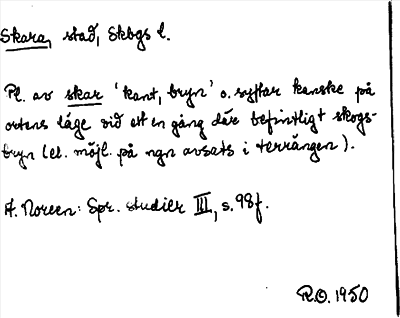 Skara, stad, Skbgs l.
Pl. av skar 'kant, bryn' o. syftar kanske på
ortens läge vid ett en gång där befintligt skogs-
bryn (el. möjl. på ngn avsats i terrängen).
A. Noreen: Spr. studier III, s. 98f.
R.O. 1950